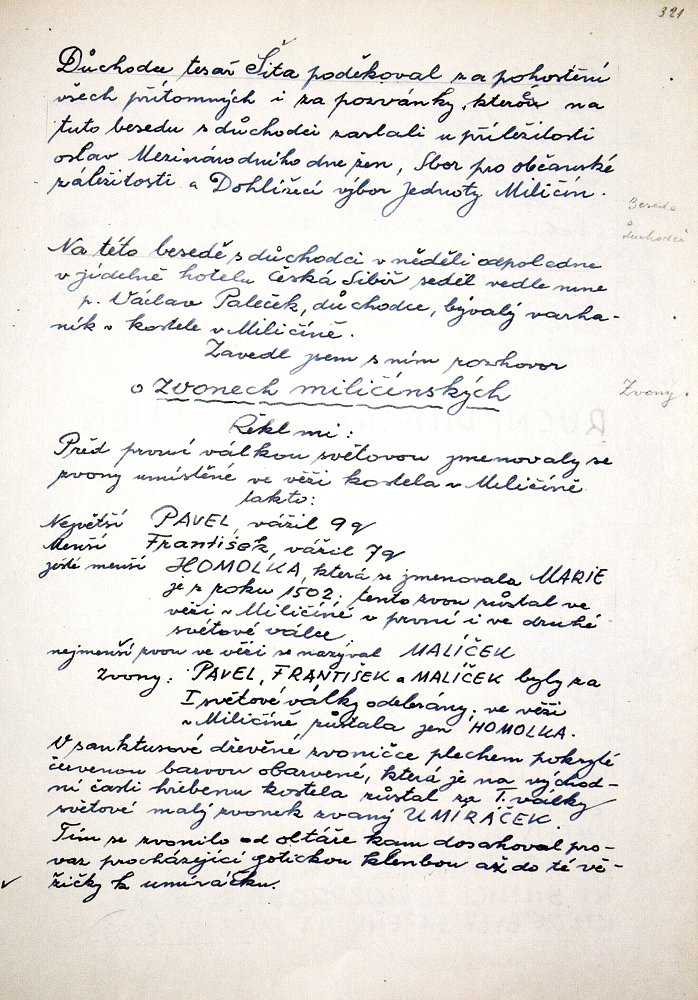 321
Důchodce tesař Šita poděkoval za pohostění
všech přítomných i za pozvánky, kterou na
tuto besedu s důchodci zaslali u příležitosti
oslav Mezinárodního dne žen, Sbor pro občanské
záležitosti a Dohlížecí výbor Jednoty Miličín.
Beseda
s
důchodci
Na této besedě s důchodci v neděli odpoledne
v jídelně hotelu Česká Sibiř seděl vedle mne
p. Václav Paleček, důchodce, bývalý varha-
ník v kostele v Miličíně.
Zavedl jsem s ním rozhovor
o zvonech miličínských
Zvony.
Řekl mi:
Před první válkou světovou jmenovaly se
zvony umístěné ve věži kostela v Miličíně
takto:
Největší PAVEL, vážil 9q
Menší František, vážil 7q
ještě menší HOMOLKA, která se jmenovala MARIE
je z roku 1502; tento zvon zůstal ve
věži v Miličíně v první i ve druhé
světové válce.
nejmenší zvon ve věži se nazýval MALÍČEK
Zvony: PAVEL, FRANTIŠEK a MALÍČEK byly za
I světové války odebrány; ve věži
v Miličíně, zůstala jen HOMOLKA.
V sanktusové dřevěné zvoničce plechem pokryté
červenou barvou obarvené, která je na východ-
ní části hřebenu kostela zůstal za I. války
světové malý zvonek zvaný UMÍRÁČEK.
Tím se zvonilo od oltáře kam dosahoval pro-
vaz procházející gotickou klenbou až do té vě-
žičky k umíráčku.